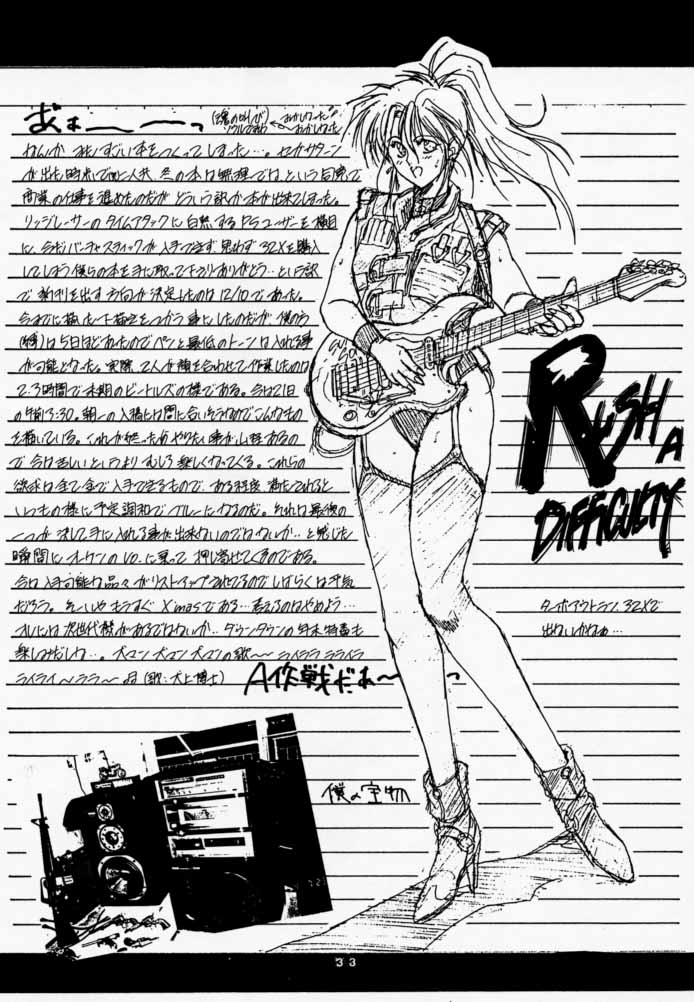 おぉーーっ
なんか ものすごい本をつくってしまった…。セガサターン
が出た時点で 冬の本は無理では、という自信で
商業の仕事を進めたのだが どういう訳か本が出来てしまった。
リッジレーサーのタイムアタックに白熱するPSユーザーを横目
に、今だバーチャスティックが入手できず 思わず 32Xを購入
してしまう僕らの本を手に取って下さりありがとう…という訳
で 新刊を出す方向が決定したのは 12/10であった。
今までに描いた下描きをつかう事にしたのだが 僕のう
は5日ほどあったのでペンと最低のトーンは入れる事
が可能となった。実際 2人が顔を合わせて作業したのは
2.3時間で末期のビートルズの様である。今は21日
の午前3:30。朝一の入稿には間に合いそうなのでこんなもの
を描いている。これが終ったら やりたい事が山程あるの
で 今は苦しいというより むしろ楽しくなってくる。これらの
欲求は全て金で入手できるもので、ある程度 満たされると
いつもの様に予定調和でブルーになるのだ。それは最後の
一つが 決して手に入れる事が出来ないのではないか…と感じた
瞬間に オレンの vo.に乗って 押し寄せてくるのである。
今は入手可能な品々がリストアップされてるので しばらくは平気
だろう。そーいや もうすぐ Xmasである…考えるのはやめよう…
オレには 次世代機があるではないか‥ダウンタウンの年末特番も
楽しみだしね…。犬マン 犬マン 犬マンの歌〜 ライララ ライライラ
ライライ〜ララ〜 (歌:犬上博士)
A作戦だぁ〜っ
RUSH A
DIFFICULTY
ターボアウトラン 32Xで
出ないかなぁ…
僕の宝物
33